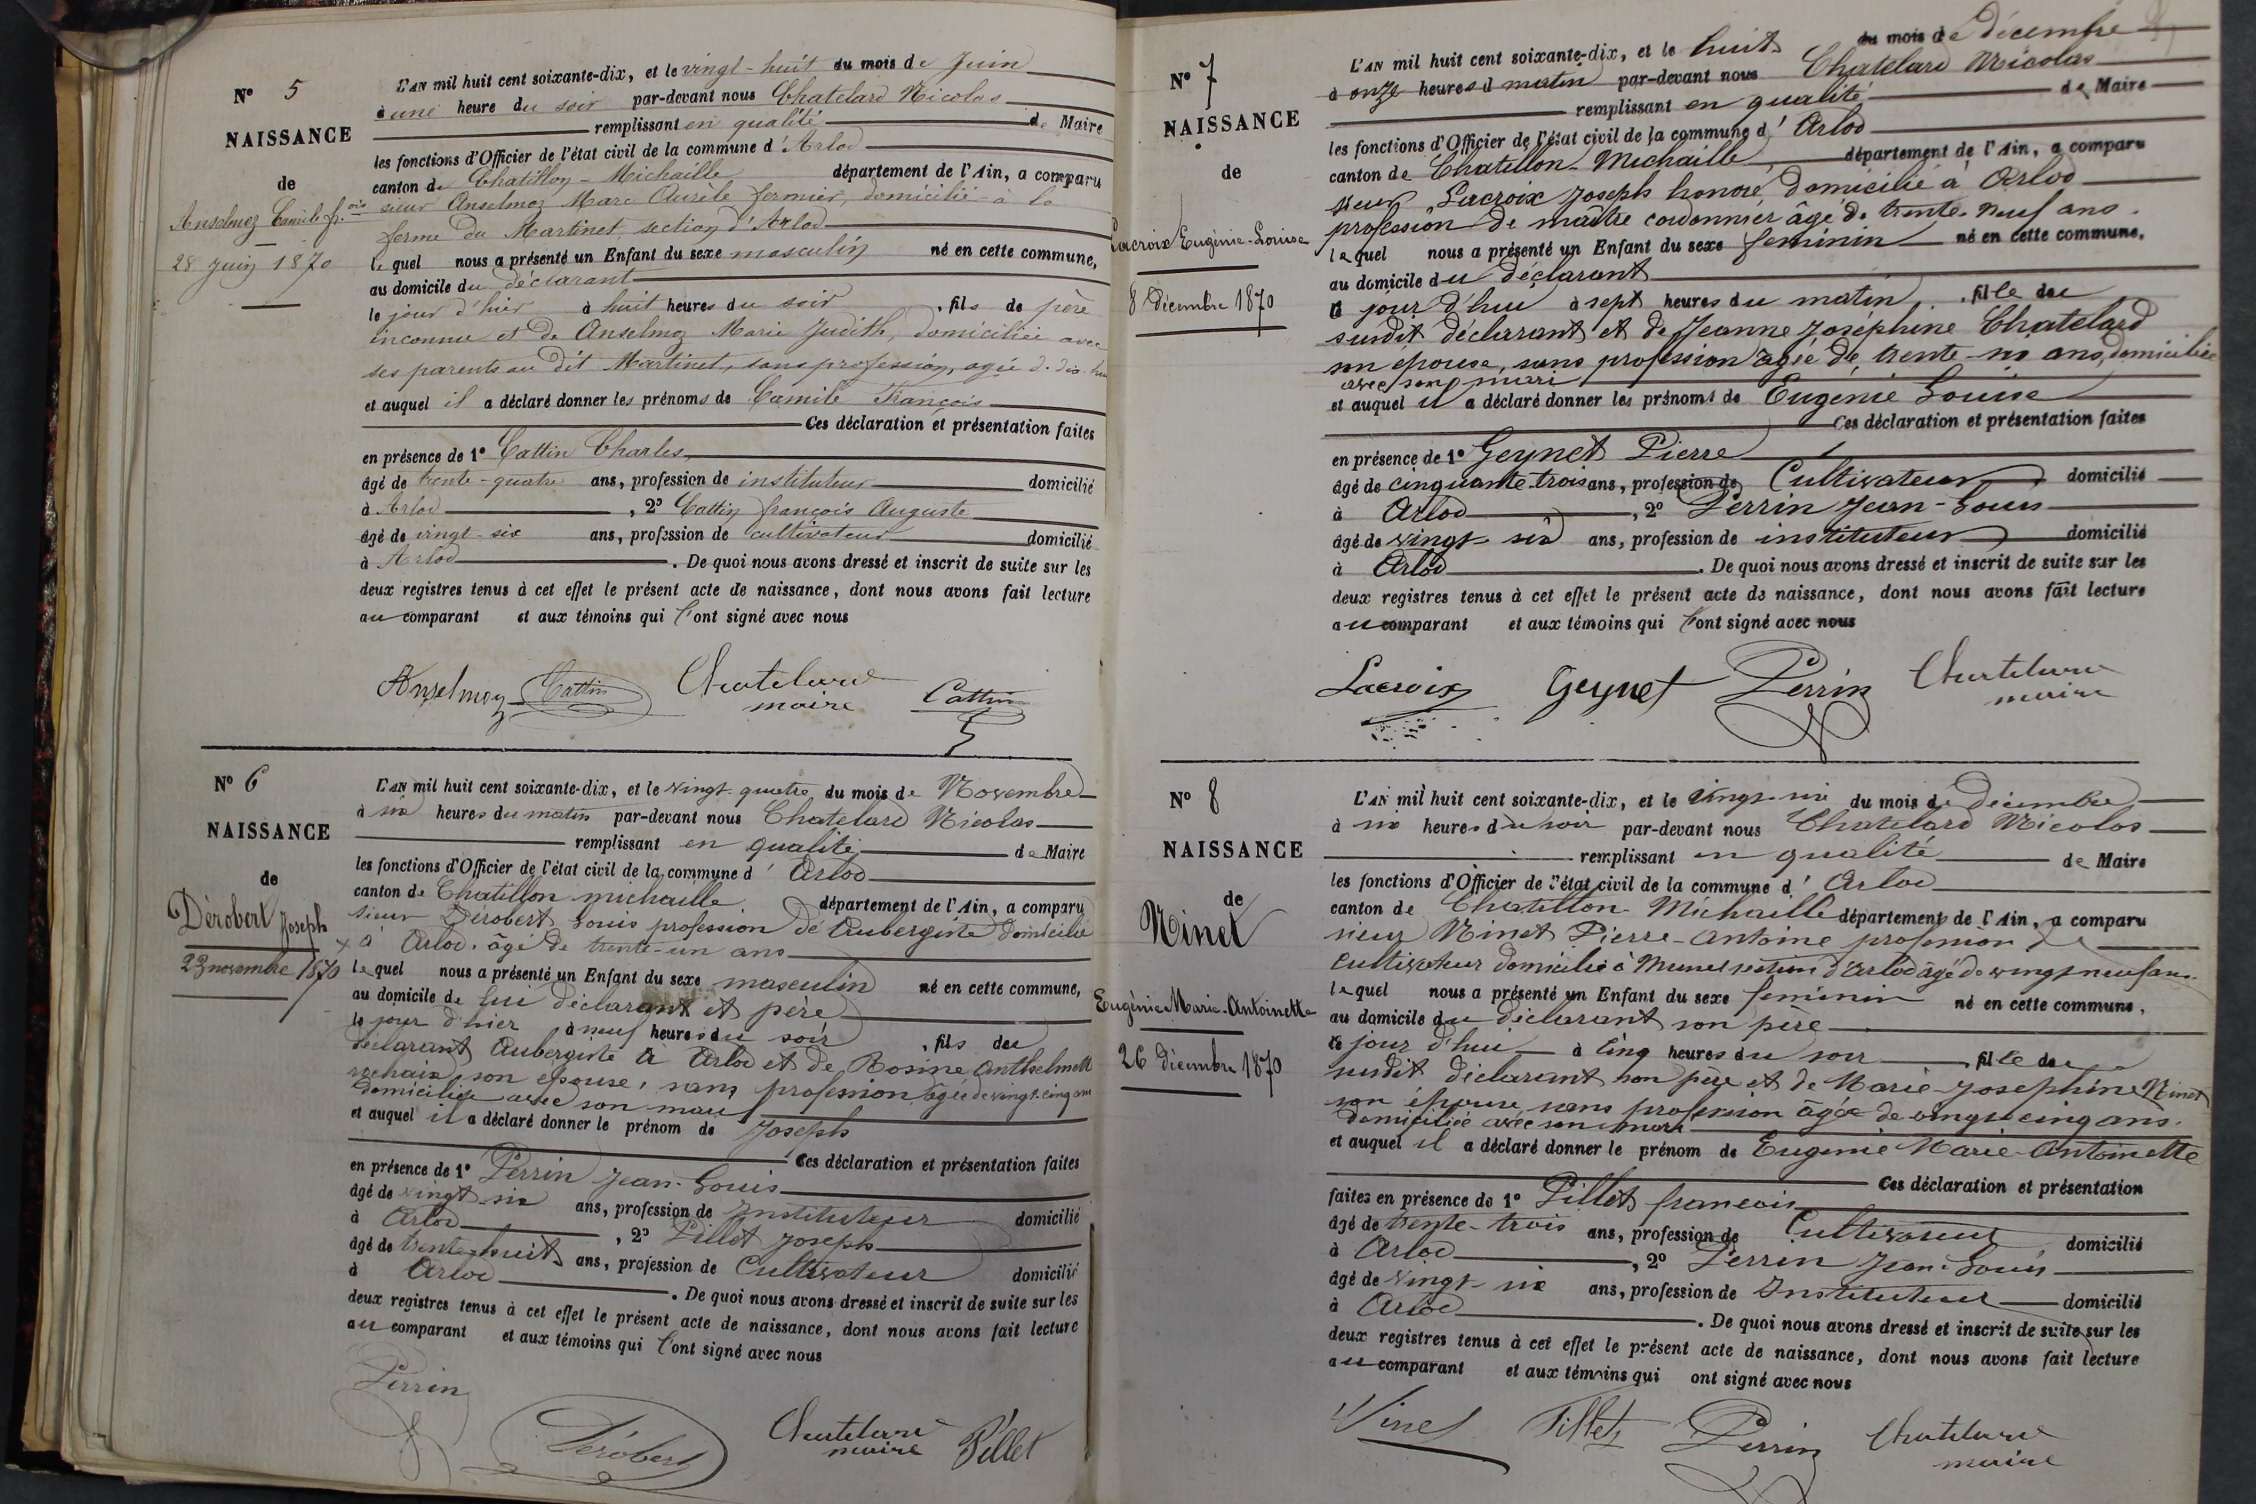 N° 5
NAISSANCE
de
Anselmoz Camile f.ois
28 juin 1870
L'AN mil huit cent soixante-dix, et le vingt-huit du mois de Juin
à une heure du soir par-devant nous Chatelard Nicolas
remplissant en qualité de Maire
les fonctions d'Officier de l'état civil de la commune d'Arlod
canton de Chatillon-Michaille département de l'Ain, a comparu
sieur Anselmoz Marc Aurèle fermier, domicilié à la
ferme du Martinet, section d'Arlod
lequel nous a présenté un Enfant du sexe masculin né en cette commune,
au domicile du déclarant
le jour d'hier à huit heures du soir, fils de père
inconnu et de Anselmoz Marie Judith, domiciliée avec
ses parents au dit Martinet, sans profession, agée de dix-hui
et auquel il a déclaré donner les prénoms de Camile François
Ces déclaration et présentation faites
en présence de 1° Cattin Charles
âgé de trente-quatre ans, profession de instituteur domicilié
à Arlod, 2° Cattin françois Auguste
âgé de vingt-six ans, profession de cultivateur domicilié
à Arlod. De quoi nous avons dressé et inscrit de suite sur les
deux registres tenus à cet effet le présent acte de naissance, dont nous avons fait lecture
au comparant et aux témoins qui l'ont signé avec nous
Anselmoz Cattin Chatelard maire Cattin
N° 6
NAISSANCE
de
Dérobert Joseph
23 novembre 1870
L'AN mil huit cent soixante-dix, et le vingt-quatre du mois de Novembre
à six heures du matin par-devant nous Chatelard Nicolas
remplissant en qualité de Maire
les fonctions d'Officier de l'état civil de la commune d'Arlod
canton de Chatillon michaille département de l'Ain, a comparu
sieur Dérobert Louis profession de Aubergiste domicilié
à Arlod, âgé de trente-un ans
lequel nous a présenté un Enfant du sexe masculin né en cette commune,
au domicile de lui déclarant et père
le jour d'hier à neuf heures du soir, fils du
déclarant Aubergiste à Arlod et de Rosine Anthelmette
son epouse, sans profession âgée de vingt-cinq ans
domiciliée avec son mari
et auquel il a déclaré donner le prénom de Joseph
Ces déclaration et présentation faites
en présence de 1° Perrin Jean-Louis
âgé de vingt-six ans, profession de Instituteur domicilié
à Arlod, 2° Pillet Joseph
âgé de trente-huit ans, profession de Cultivateur domicilié
à Arlod. De quoi nous avons dressé et inscrit de suite sur les
deux registres tenus à cet effet le présent acte de naissance, dont nous avons fait lecture
au comparant et aux témoins qui l'ont signé avec nous
Perrin Dérobert Chatelard maire Pillet
N° 7
NAISSANCE
de
Lacroix Eugénie-Louise
8 Décembre 1870
L'AN mil huit cent soixante-dix, et le huit du mois de décembre
à onze heures d matin par-devant nous Chatelard Nicolas
remplissant en qualité de Maire
les fonctions d'Officier de l'état civil de la commune d'Arlod
canton de Chatillon-Michaille département de l'Ain, a comparu
sieur Lacroix Joseph honoré domicilié à Arlod
profession de maître cordonnier âgé de trente-neuf ans.
lequel nous a présenté un Enfant du sexe feminin né en cette commune,
au domicile du déclarant
le jour d'hui à sept heures du matin, fille du
susdit déclarrant et de Jeanne Joséphine Chatelard
son epouse, sans profession agée de trente-six ans, domiciliée
avec son mari
et auquel il a déclaré donner les prénoms de Eugénie Louise
Ces déclaration et présentation faites
en présence de 1° Geynet Pierre
âgé de cinquante-trois ans, profession de Cultivateur domicilié
à Arlod, 2° Perrin Jean-Louis
âgé de vingt-six ans, profession de instituteur domicilié
à Arlod. De quoi nous avons dressé et inscrit de suite sur les
deux registres tenus à cet effet le présent acte de naissance, dont nous avons fait lecture
au comparant et aux témoins qui l'ont signé avec nous
Lacroix Geynet Perrin Chatelard maire
N° 8
NAISSANCE
de
Ninet
Eugénie-Marie-Antoinette
26 décembre 1870
L'AN mil huit cent soixante-dix, et le vingt-six du mois de décembre
à six heures du soir par-devant nous Chatelard Nicolas
remplissant en qualité de Maire
les fonctions d'Officier de l'état civil de la commune d'Arlod
canton de Chatillon-Michaille département de l'Ain, a comparu
sieur Ninet Pierre-Antoine profession de
cultivateur domicilié à Musel section d'Arlod âgé de vingt neuf ans.
lequel nous a présenté un Enfant du sexe feminin né en cette commune,
au domicile du déclarant son père
le jour d'hui à cinq heures du soir fille du
susdit déclarant son père et de Marie-Josephine Ninet
son épouse, sans profession âgée de vingt-cinq ans.
domiciliée avec son mari
et auquel il a déclaré donner le prénom de Eugenie Marie-Antoinette
Ces déclaration et présentation
faites en présence de 1° Pillet francois
âgé de trente-trois ans, profession de Cultivateur domicilié
à Arlod, 2° Perrin Jean-Louis
âgé de vingt-six ans, profession de Instituteur domicilié
à Arlod. De quoi nous avons dressé et inscrit de suite sur les
deux registres tenus à cet effet le présent acte de naissance, dont nous avons fait lecture
au comparant et aux témoins qui ont signé avec nous
Ninet Pillet Perrin Chatelard maire